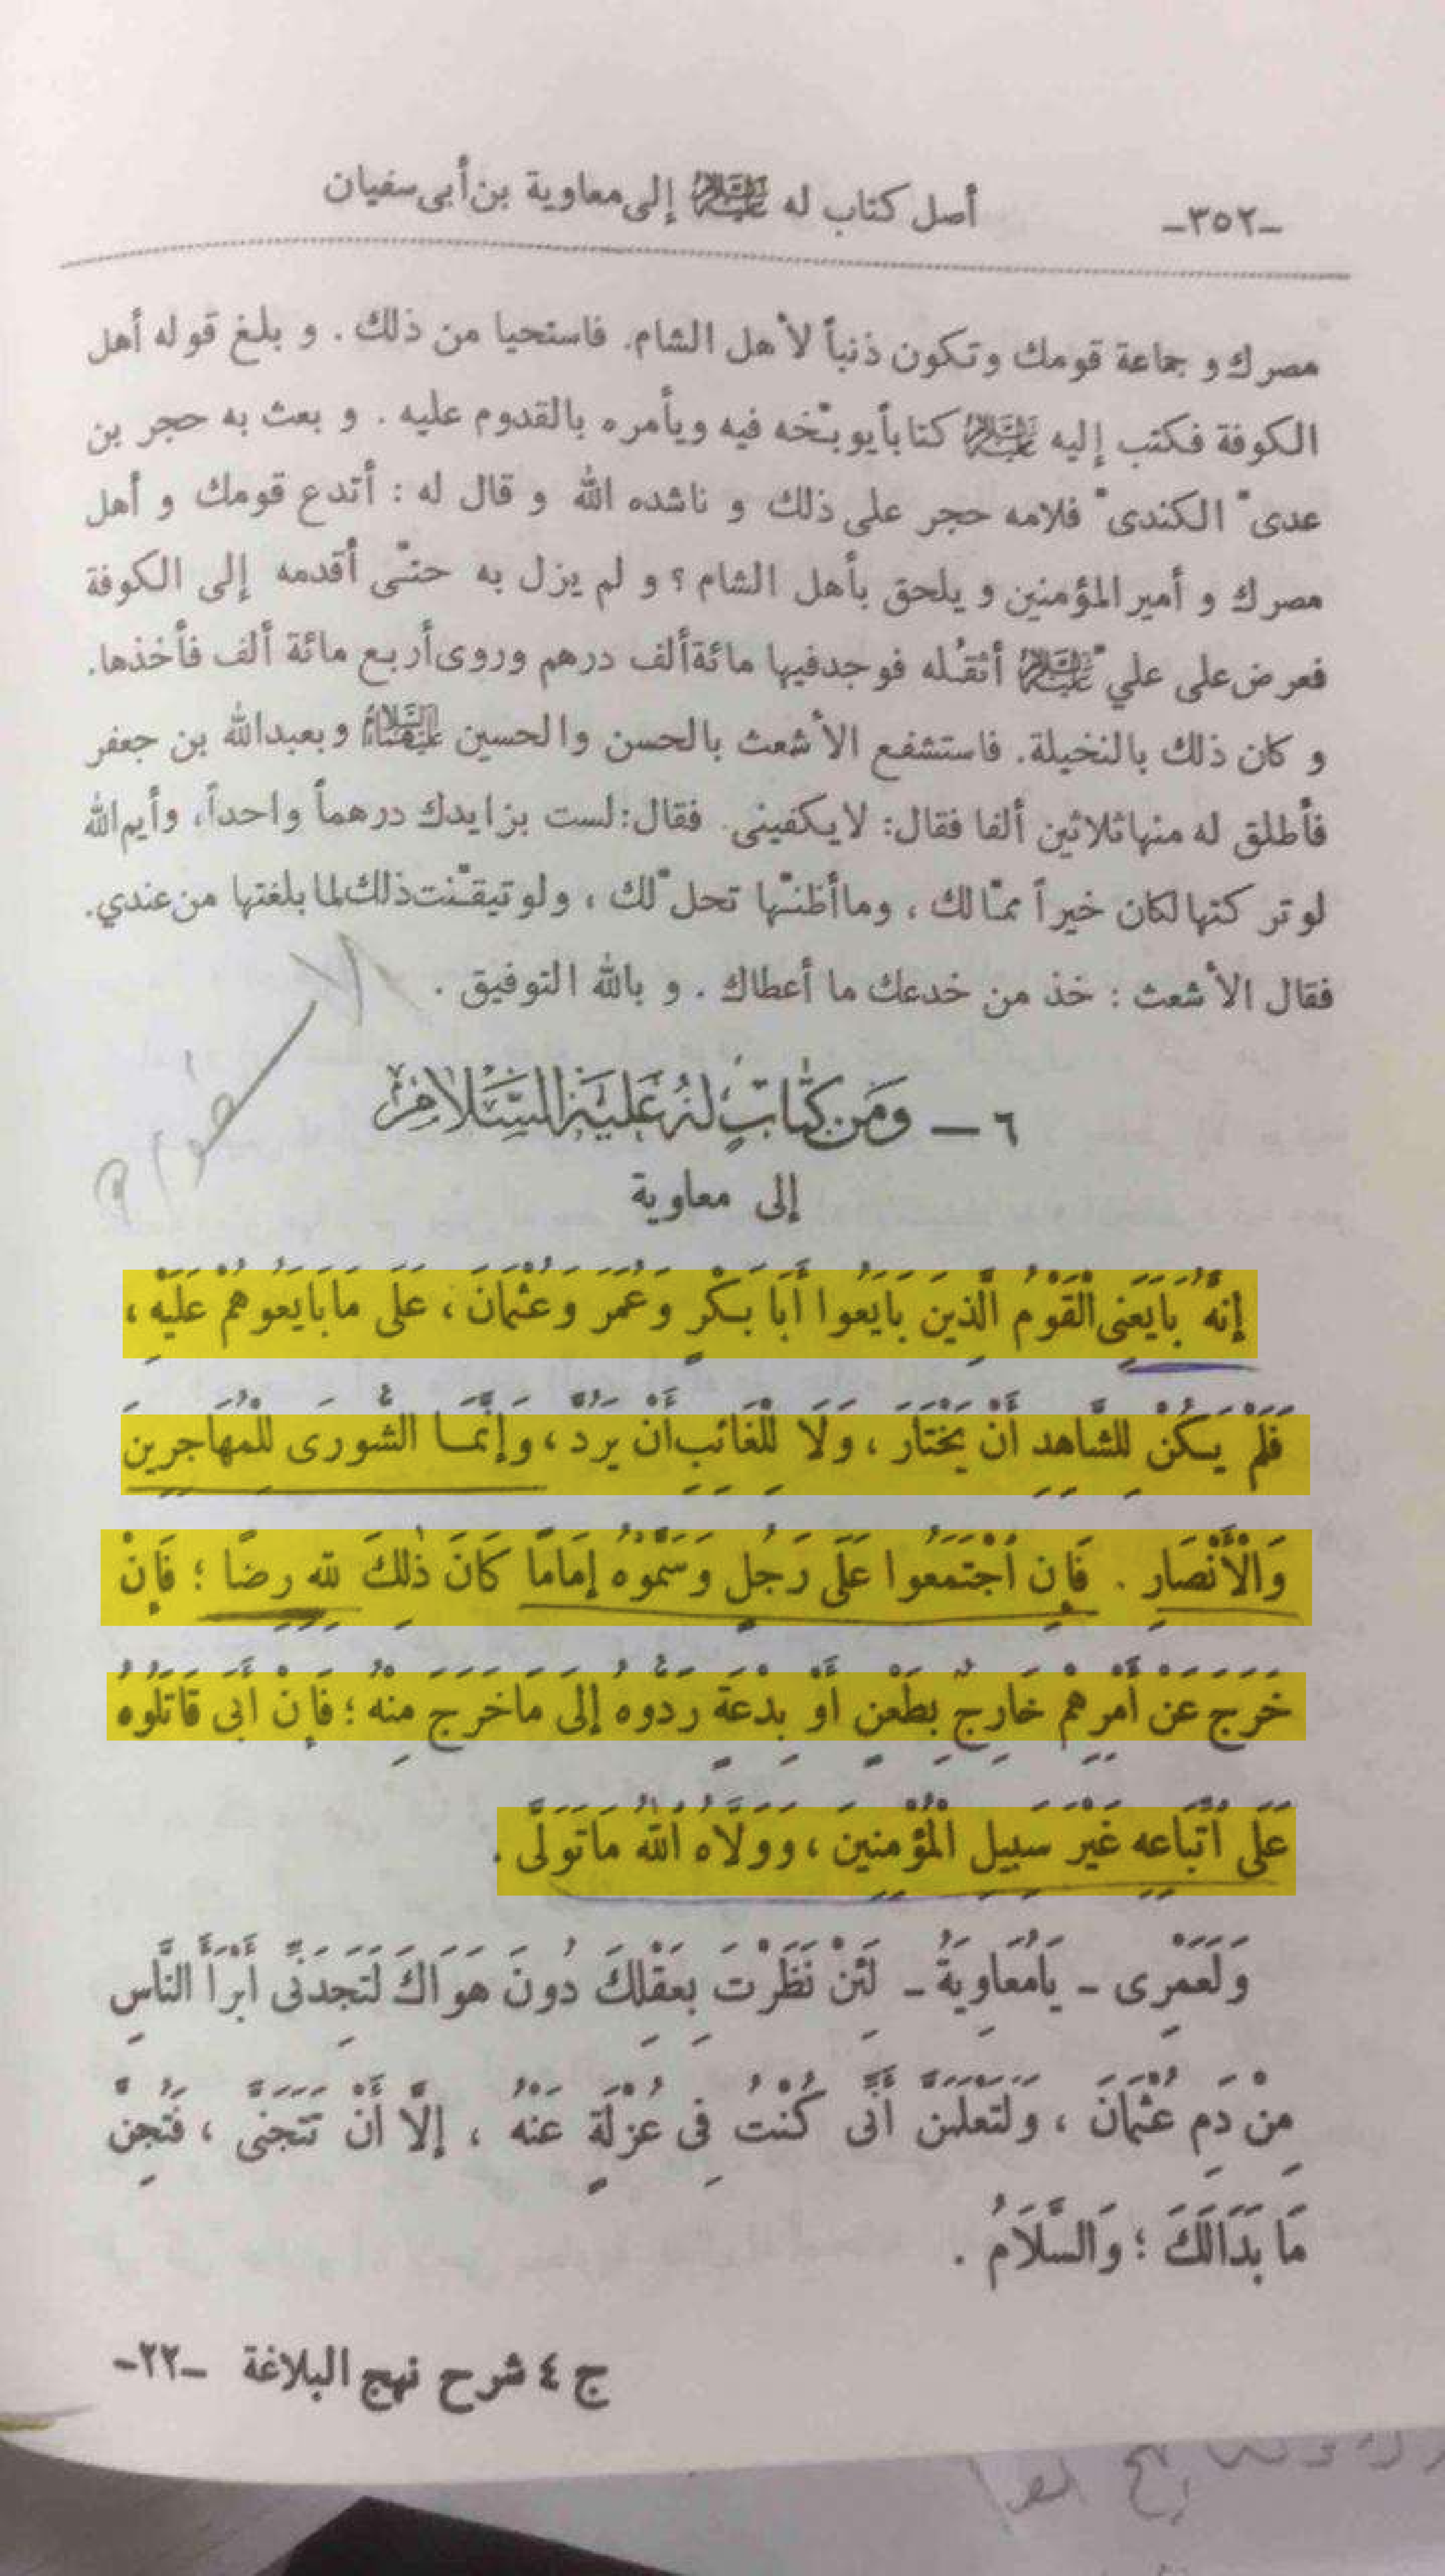 -٣٥٢- أصل كتاب له عليه السلام إلى معاوية بن أبى سفيان
مصرك و جماعة قومك وتكون ذنباً لأهل الشام. فاستحيا من ذلك . و بلغ قوله أهل
الكوفة فكتب إليه عليه السلام كتاباً يوبّخه فيه ويأمره بالقدوم عليه . و بعث به حجر بن
عدىّ الكندىّ فلامه حجر على ذلك و ناشده الله و قال له : أتدع قومك و أهل
مصرك و أمير المؤمنين و يلحق بأهل الشام ؟ و لم يزل به حتّى أقدمه إلى الكوفة
فعرض على عليّ عليه السلام أثقُله فوجد فيها مائة ألف درهم وروى أربع مائة ألف فأخذها.
و كان ذلك بالنخيلة. فاستشفع الأشعث بالحسن والحسين عليهما السلام وبعبدالله بن جعفر
فأطلق له منها ثلاثين ألفا فقال: لايكفينى. فقال: لست بزايدك درهماً واحداً، وأيم الله
لو تركتها لكان خيراً ممّا لك ، وما أظنّها تحلّ لك ، ولو تيقّنت ذلك لما بلغتها من عندي.
فقال الأشعث : خذ من خدعك ما أعطاك . و بالله التوفيق .
٦ – وَمِن كِتَابٍ لَهُ عَلَيْهِ السَّلَامُ
إلى معاوية
إِنَّهُ بَايَعَنِى الْقَوْمُ الَّذِينَ بَايَعُوا أَبَا بَكْرٍ وَعُمَرَ وَعُثْمَانَ ، عَلَى مَا بَايَعُوهُمْ عَلَيْهِ ،
فَلَمْ يَكُنْ لِلشَّاهِدِ أَنْ يَخْتَارَ ، وَلَا لِلْغَائِبِ أَنْ يَرُدَّ ، وَإِنَّمَا الشُّورَى لِلْمُهَاجِرِينَ
وَالْأَنْصَارِ . فَإِنِ اجْتَمَعُوا عَلَى رَجُلٍ وَسَمَّوْهُ إِمَامًا كَانَ ذٰلِكَ لِلّٰهِ رِضًا ؛ فَإِنْ
خَرَجَ عَنْ أَمْرِهِمْ خَارِجٌ بِطَعْنٍ أَوْ بِدْعَةٍ رَدُّوهُ إِلَى مَا خَرَجَ مِنْهُ ؛ فَإِنْ أَبَى قَاتَلُوهُ
عَلَى اتِّبَاعِهِ غَيْرَ سَبِيلِ الْمُؤْمِنِينَ ، وَوَلَّاهُ اللّٰهُ مَا تَوَلَّى .
وَلَعَمْرِى – يَا مُعَاوِيَةُ – لَئِنْ نَظَرْتَ بِعَقْلِكَ دُونَ هَوَاكَ لَتَجِدَنِّى أَبْرَأَ النَّاسِ
مِنْ دَمِ عُثْمَانَ ، وَلَتَعْلَمَنَّ أَنِّى كُنْتُ فِى عُزْلَةٍ عَنْهُ ، إِلَّا أَنْ تَتَجَنَّى ، فَتَجَنَّ
مَا بَدَا لَكَ ؛ وَالسَّلَامُ .
ج ٤ شرح نهج البلاغة -٢٢-